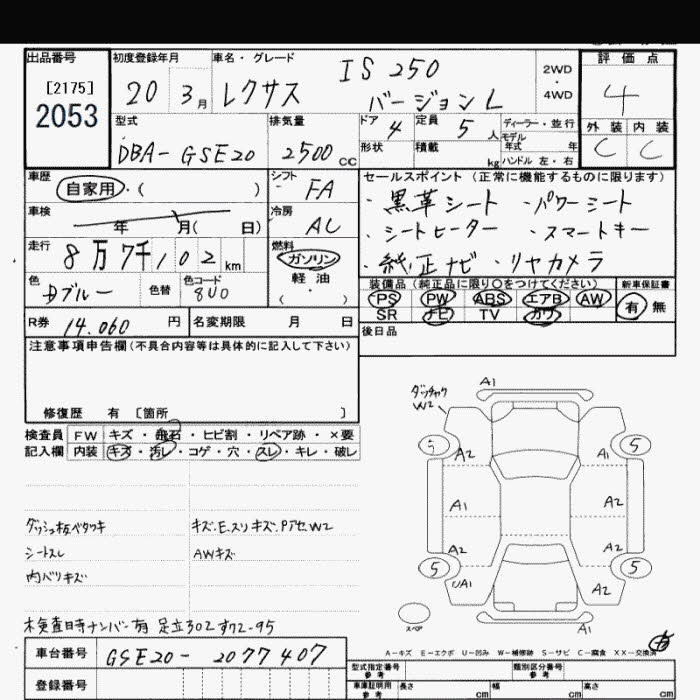 出品番号
[2175]
2053
初度登録年月
20 3月
車名・グレード
IS 250
レクサス バージョンL
2WD
・
4WD
評価点
4
外装 内装
C C
型式
DBA-GSE20
排気量
2500 CC
ドア 4
定員 5 人
ディーラー・並行
モデル年式 年
形状
積載 kg
ハンドル 左・右
車歴
自家用・( )
シフト
FA
車検
年 月( 日)
冷房
AC
走行
8万7千102km
燃料
ガソリン
軽油
( ・ )
色
Dブルー
色替
色コード
8U0
R券 14.060 円
名変期限 月 日
セールスポイント(正常に機能するものに限ります)
・黒革シート ・パワーシート
・シートヒーター ・スマートキー
・純正ナビ・リヤカメラ
装備品(純正品に限り○をつけてください)
PS PW ABS エアB AW
SR ナビ TV カワ
新車保証書
有 無
後日品
注意事項申告欄(不具合内容等は具体的に記入して下さい)
修復歴 有 〔箇所 〕
検査員記入欄
FW キズ・飛石・ヒビ割・リペア跡・×要
内装 キズ・汚レ・コゲ・穴・スレ・キレ・破レ
ダッシュ板ベタツキ
シートスレ
内バリキズ
キズ.E.スリキズ.Pアセ.W2
AWキズ
検査日時ナンバー有 足立302す72-95
ダッチャク
W2
A1
5 5
A2 A1
A1 A2
A2 A2
5 5
UA1 A2
スペア
A1
A-キズ E-エクボ U-凹み W-補修跡 S-サビ C-腐食 XX-交換済
車台番号
GSE20-2077407
登録番号
型式指定番号
参考
類別区分番号
参考
車庫証明用
参考
長さ cm
幅 cm
高さ cm